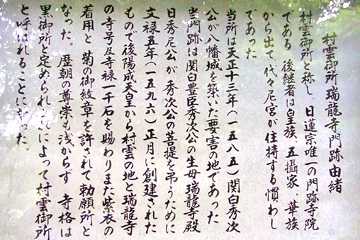 村雲御所瑞龍寺門跡由緒
村雲御所と称し 日蓮宗唯一の門跡寺院
である 後継者は皇族 五摂家 華族
から出て代々尼宮が住持する慣わし
であった
当所は天正十三年(一五八五)関白秀次
公が八幡城を築いた要害の地であった
当門跡は関白豊臣秀次公の生母瑞龍寺殿
日秀尼公が秀次公の菩提を弔うために
文禄五年(一五九六)正月に創建された
もので後陽成天皇から村雲の地と瑞龍寺
の寺号及寺禄一千石を賜わりまた紫衣の
着用と菊の御紋章を許されて勅願所と
なった。歴朝の尊崇も浅からず 寺格は
黒御所と定められこれによって村雲御所
と呼ばれることになった